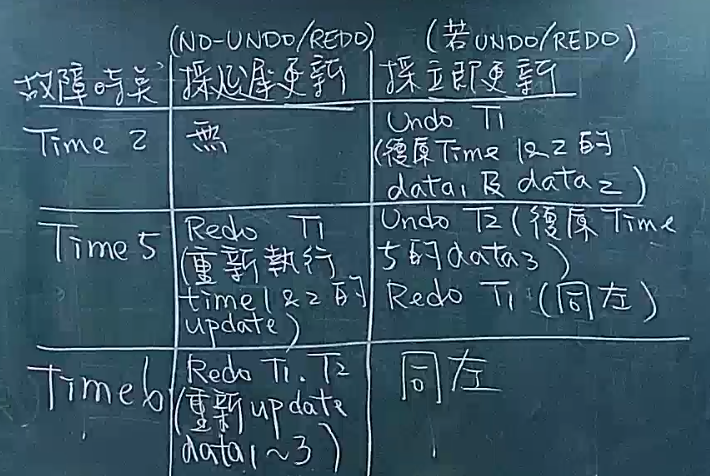 (NO-UNDO/REDO)
(若UNDO/REDO)
故障時芺
採延遲更新
採立即更新
Time 2
無
Undo T1
(復原Time 1&2的
data1及data2)
Time 5
Redo T1
(重新執行
time1&2的
update)
Undo T2(復原Time
5的data3)
Redo T1(同左)
Time6
Redo T1.T2
(重新update
data1~3)
同左